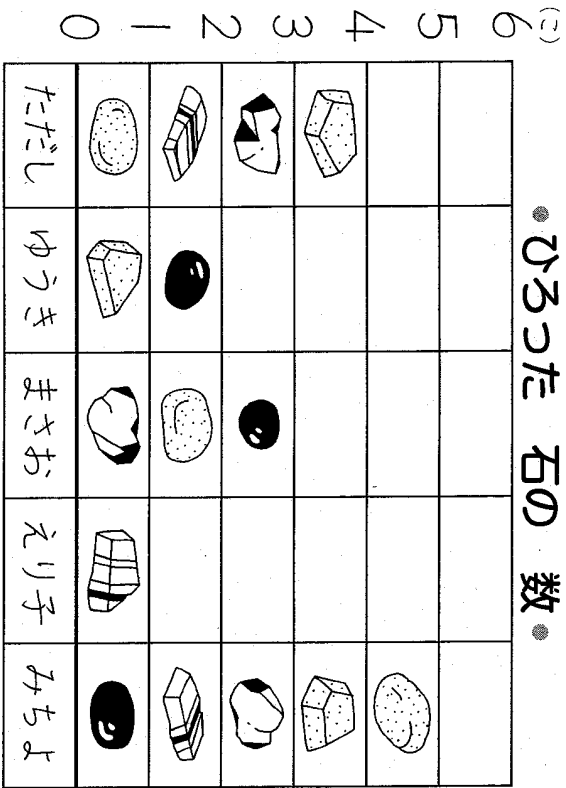 •ひろった 石の 数•
(こ)
6
5
4
3
2
1
0
ただし
ゆうき
まさお
えり子
みちよ